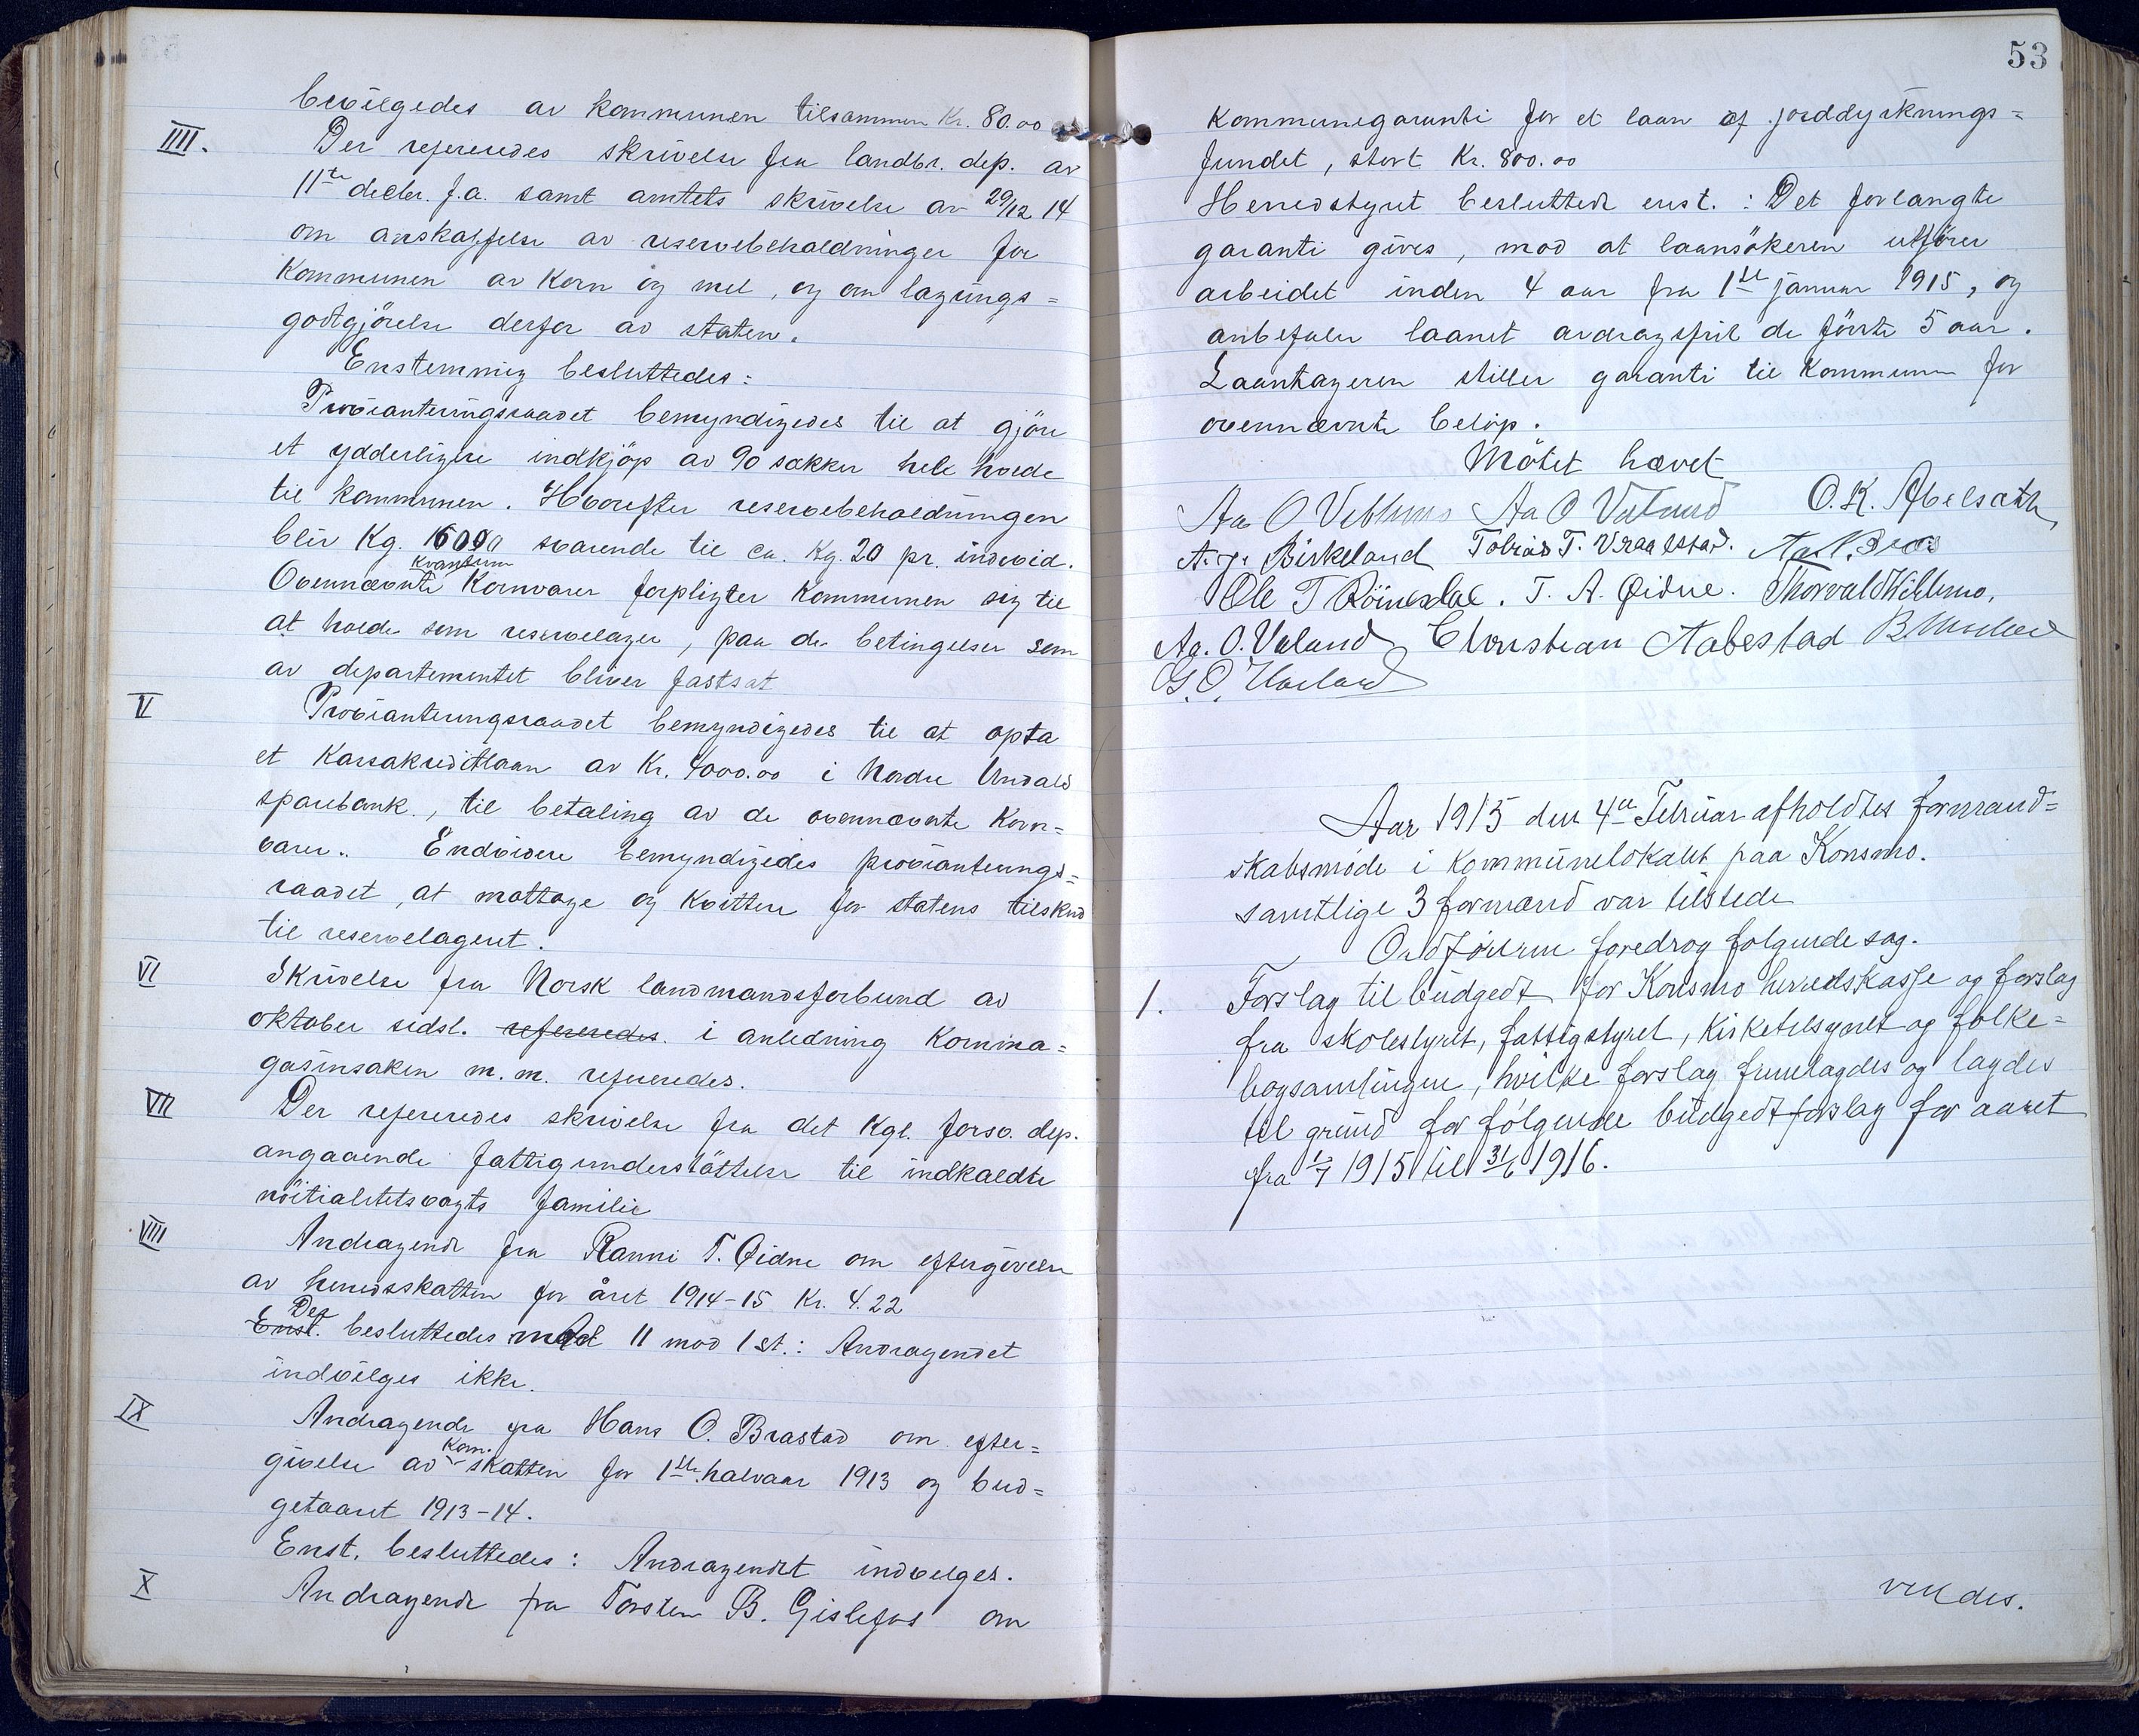 bevilgedes av kommunen tilsammen Kr. 80.00
IIII. Der refereredes skrivelse fra landbr. dep. av
11te decbr. f.a. samt amtets skrivelse av 29/12 14
om anskaffelse av reservebeholdninger for
kommunen av korn og mel, og om lagrings=
godtgjörelse derfor av staten.
Enstemmig besluttedes:
Provianteringsraadet bemyndigedes til at gjöre
et ydderligere indkjöp av 90 sækker hele hvede
til kommunen. Hvorefter reservebeholdningen
blir Kg. 16000 svarende til ca. Kg. 20 pr. individ.
Ovennævnte kvantum Kornvarer forpligter Kommunen sig til
at holde som reservelager, paa de betingelser som
av departementet bliver fastsat
V Provianteringsraadet bemyndigedes til at opta
et Kassakreditlaan av Kr. 4000.00 i Nordre Undals
sparebank, til betaling av de ovennævnte Korn=
varer. Endvidere bemyndigedes provianterings=
raadet, at mottage og kvittere for statens tilskud
til reservelageret.
VI Skrivelse fra Norsk landmandsforbund av
oktober sidst. refereredes i anledning Kornma=
gasinsaken m.m. refereredes.
VII Der refereredes skrivelse fra det Kgl. forsv. dep.
angaaende fattigunderstöttelse til indkaldte
nöitialitetsvagts familie
VIII Andragende fra Ranni T. Øidne om eftergivelse
av herredsskatten for året 1914-15 Kr. 4.22
Enst. Der besluttedes med 11 mod 1 st.: Andragendet
indvilges ikke.
IX Andragende fra Hans O. Brastad om efter=
givelse av Kom. skatten for 1ste halvaar 1913 og bud=
getaaret 1913-14.
Enst. besluttedes: Andragendet indvilges.
X Andragende fra Torsten B. Gislefos om
53
Kommunegaranti for et laan af jorddyrknings=
fundet, stort Kr. 800.00
Herredstyret besluttede enst.: Det forlangte
garanti gives, mod at laansökeren utförer
arbeidet inden 4 aar fra 1ste januar 1915, og
anbefaler laanet avdragsfrit de förste 5 aar.
Laantageren stiller garanti til Kommunen for
ovennævnte belöp.
Mötet hævet
Aa O Vehhus Aa O Valand O. K. Abelsæth
A. J. Birkeland Tobias T. Vraalstad.
Ole T Röinesdal. T. A. Øidne. Thorvald Killmo.
Aa. O. Valand Christian Aabestad
G. O. Haaland
Aar 1915 den 4de Februar afholdtes formand=
skabsmöde i kommunelokalet paa Konsmo.
samtlige 3 formænd var tilstede
Ordföreren foredrog folgende sag.
1. Forslag til budgedt for Konsmo herredskasse og forslag
fra skolestyret, fattigstyret, Kirketilsynet og folke=
bogsamlingen, hvilke forslag fremlagdes og lagdes
til grund for følgende budgedtforslag for aaret
fra 1/7 1915 til 31/6 1916.
vendes.